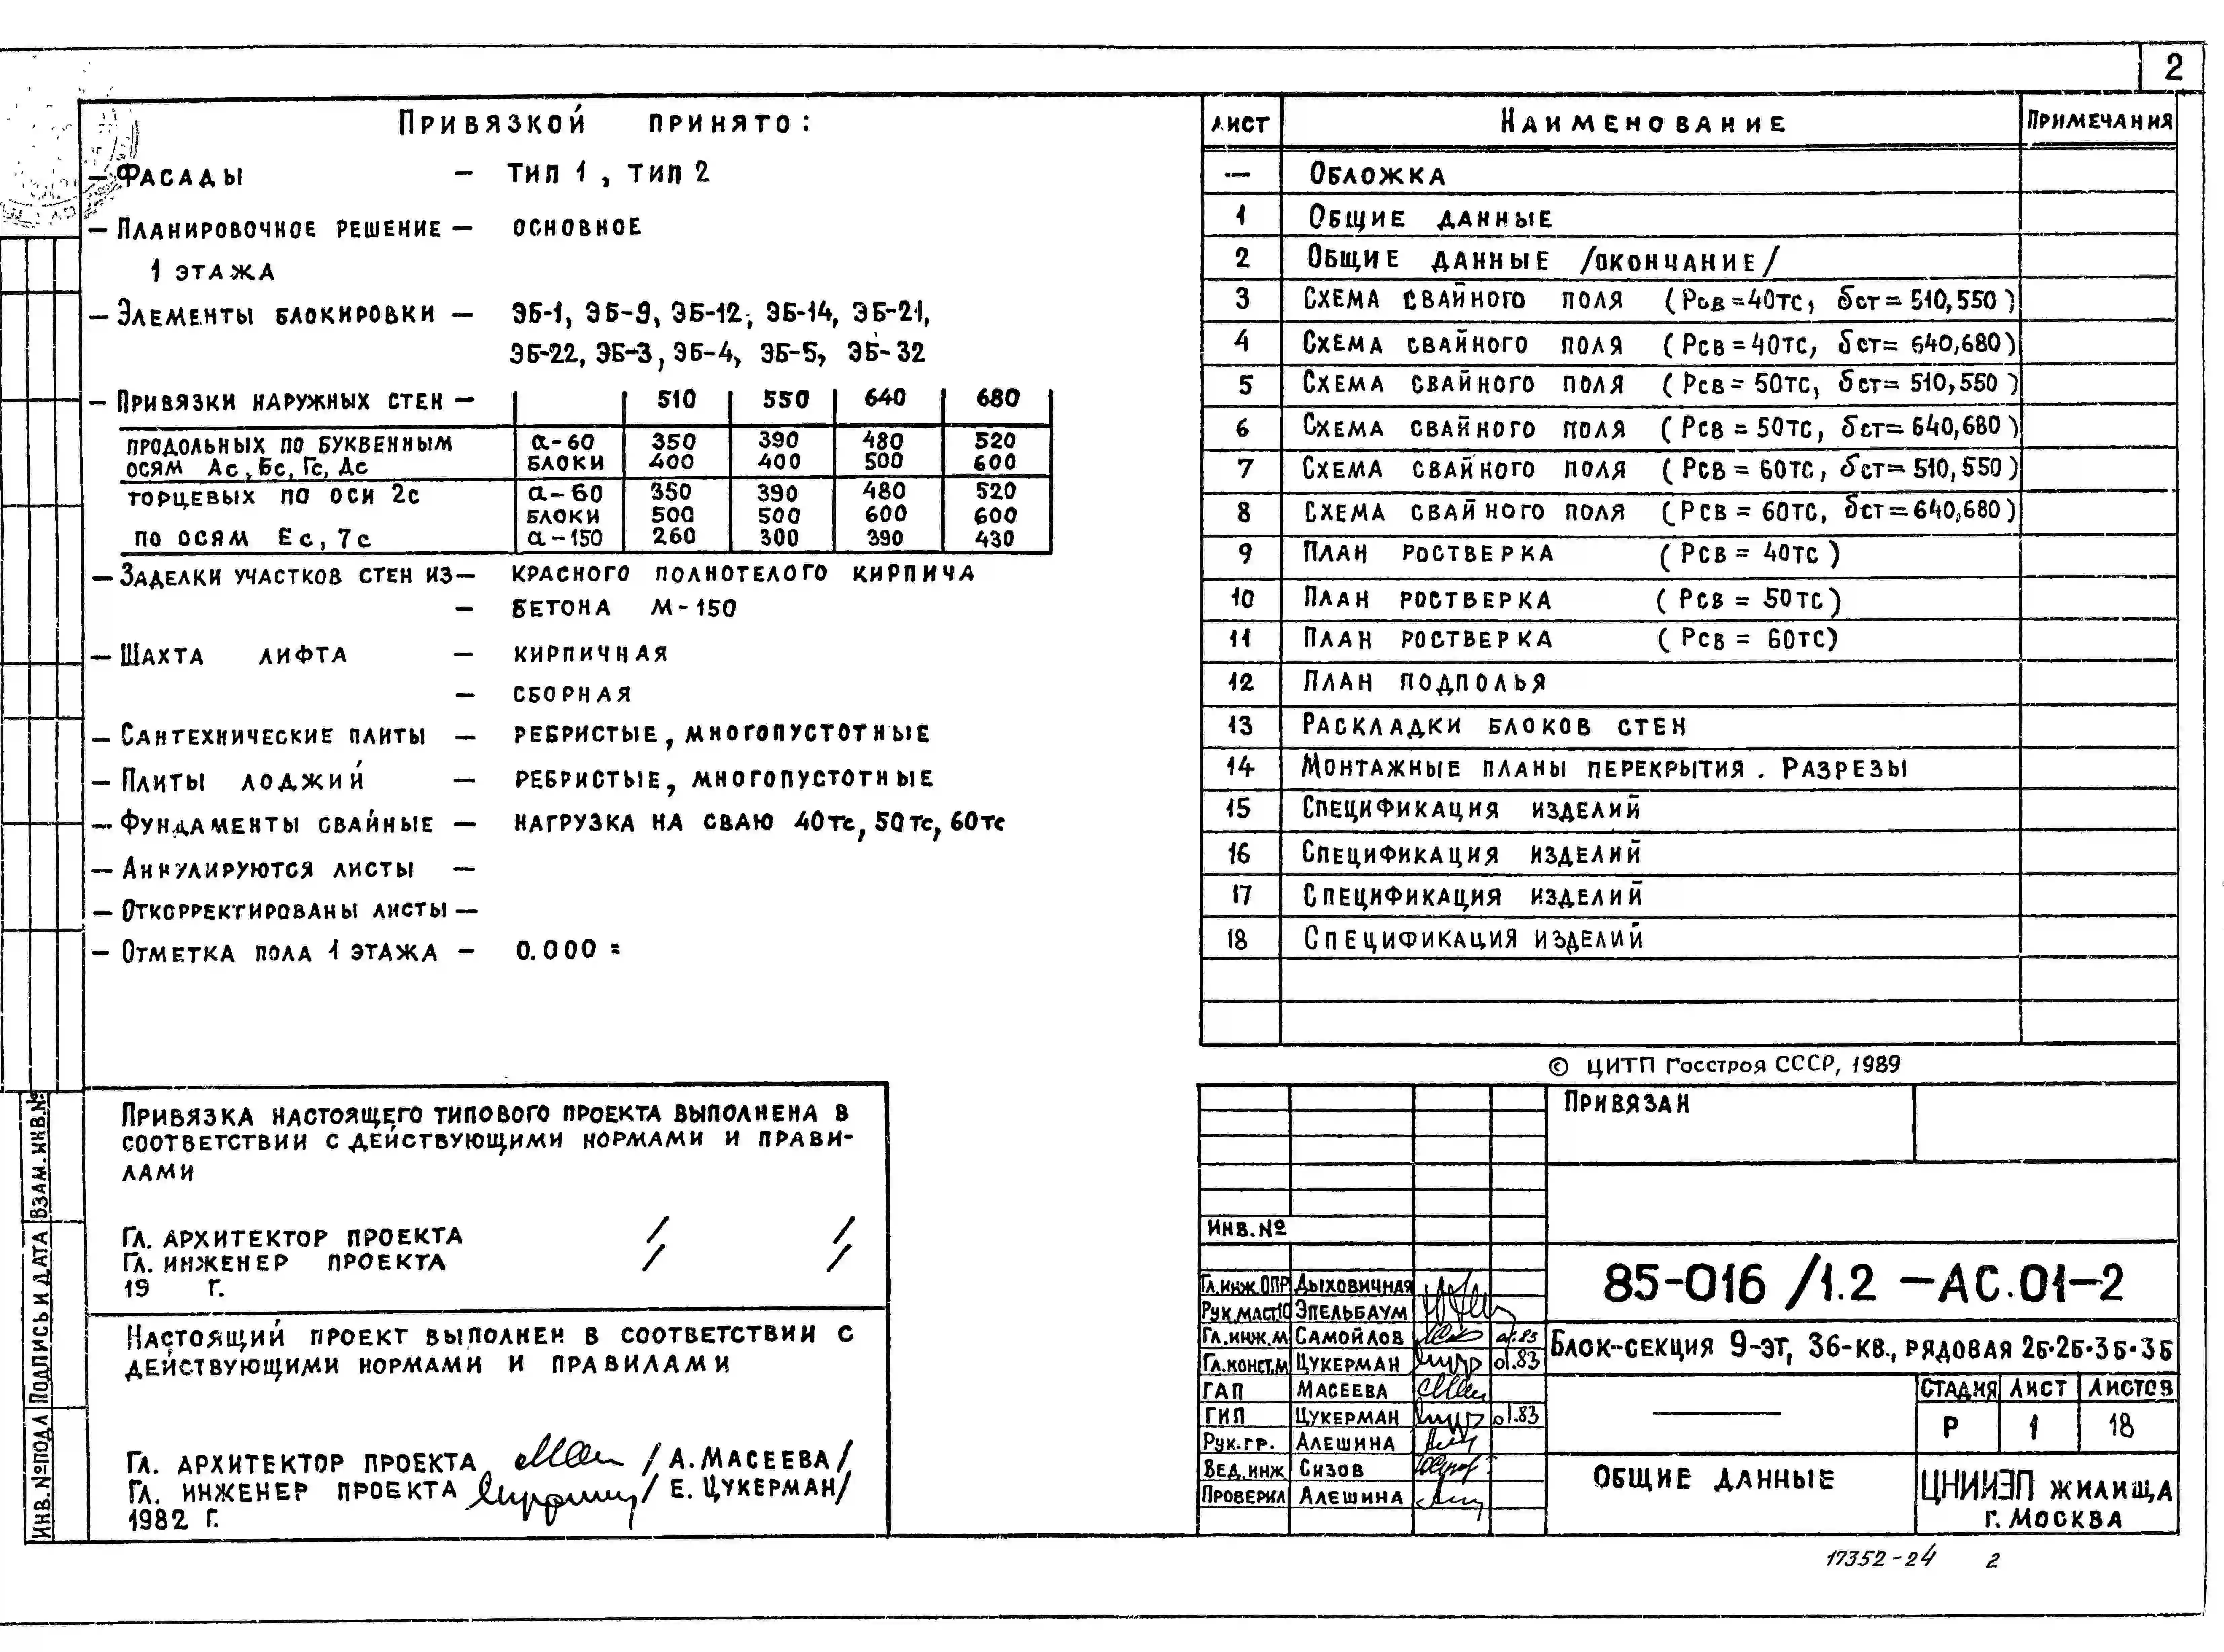 2
Привязкой принято:
— Фасады — тип 1, тип 2
— Планировочное решение — основное
1 этажа
— Элементы блокировки — ЭБ-1, ЭБ-9, ЭБ-12, ЭБ-14, ЭБ-21,
ЭБ-22, ЭБ-3, ЭБ-4, ЭБ-5, ЭБ-32
— Привязки наружных стен — 510 550 640 680
продольных по буквенным а-60 350 390 480 520
осям Ас, Бс, Гс, Дс блоки 400 400 500 600
торцевых по оси 2с а-60 350 390 480 520
блоки 500 500 600 600
по осям Ес, 7с а-150 260 300 390 430
— Заделки участков стен из — красного полнотелого кирпича
— бетона М-150
— Шахта лифта — кирпичная
— сборная
— Сантехнические плиты — ребристые, многопустотные
— Плиты лоджий — ребристые, многопустотные
— Фундаменты свайные — нагрузка на сваю 40тс, 50тс, 60тс
— Аннулируются листы —
— Откорректированы листы —
— Отметка пола 1 этажа — 0.000 =
Привязка настоящего типового проекта выполнена в
соответствии с действующими нормами и прави-
лами
Гл. архитектор проекта / /
Гл. инженер проекта / /
19 г.
Настоящий проект выполнен в соответствии с
действующими нормами и правилами
Гл. архитектор проекта / А. Масеева /
Гл. инженер проекта / Е. Цукерман /
1982 г.
Инв.№ подл Подпись и дата Взам.инв.№
Лист Наименование Примечания
— Обложка
1 Общие данные
2 Общие данные /окончание/
3 Схема свайного поля (Рсв=40тс, δст=510,550)
4 Схема свайного поля (Рсв=40тс, δст=640,680)
5 Схема свайного поля (Рсв=50тс, δст=510,550)
6 Схема свайного поля (Рсв=50тс, δст=640,680)
7 Схема свайного поля (Рсв=60тс, δст=510,550)
8 Схема свайного поля (Рсв=60тс, δст=640,680)
9 План ростверка (Рсв=40тс)
10 План ростверка (Рсв=50тс)
11 План ростверка (Рсв=60тс)
12 План подполья
13 Раскладки блоков стен
14 Монтажные планы перекрытия. Разрезы
15 Спецификация изделий
16 Спецификация изделий
17 Спецификация изделий
18 Спецификация изделий
© ЦИТП Госстроя СССР, 1989
Привязан
Инв.№
Гл.инж.ОПР Дыховичная
Рук.маст.10 Эпельбаум
Гл.инж.м Самойлов
Гл.конст.м Цукерман 01.83
ГАП Масеева
ГИП Цукерман 01.83
Рук.гр. Алешина
Вед.инж Сизов
Проверил Алешина
85-016/1.2-АС.01-2
Блок-секция 9-эт, 36-кв., рядовая 2Б·2Б·3Б·3Б
Стадия Лист Листов
Р 1 18
Общие данные
ЦНИИЭП жилища
г. Москва
17352-24 2